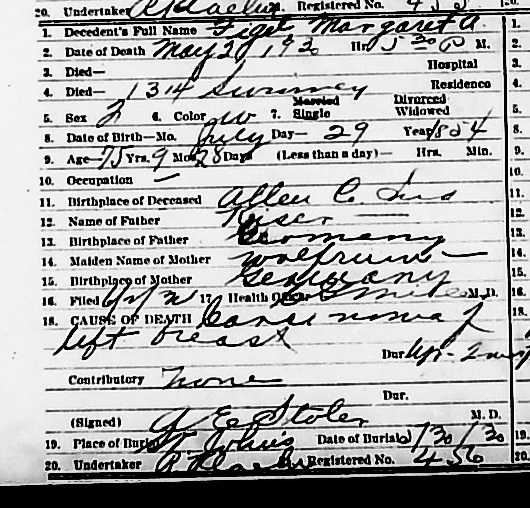 20. Undertaker Registered No. 455 20.
1. Decedent's Full Name Figel Margaret A 1.
2. Date of Death May 27 1930 Hr 5 30 P M. 2.
3. Died— Hospital 3.
4. Died— 1314 Swinney Residence 4.
5. Sex F 6. Color W 7. Married Single Divorced Widowed 5.
8. Date of Birth—Mo. July Day— 29 Year 1854 8.
9. Age— 75 Yrs. 9 Mos. 28 Days (Less than a day)— Hrs. Min. 9.
10. Occupation — 10.
11. Birthplace of Deceased Allen C. Ind 11.
12. Name of Father Kiser 12.
13. Birthplace of Father Germany 13.
14. Maiden Name of Mother Wolfrum 14.
15. Birthplace of Mother Germany 15.
16. Filed 17 Health M. D. 16.
18. CAUSE OF DEATH Carcinoma of 18.
left breast
Dur. 4yr-2
Contributory None
Dur.
(Signed) A E Stoler M. D.
19. Place of Burial St. John's Date of Burial 5/30/30 19.
20. Undertaker Registered No. 456 20.